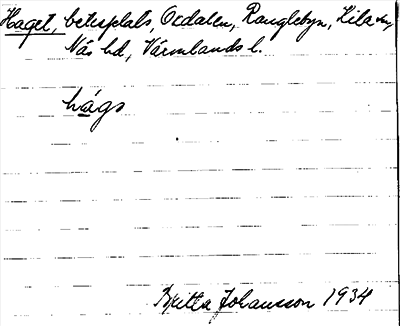 Haget, betesplats, Oedalen, Ranglebyn, Kila sn,
Näs hd, Värmlands l.
hágs
Britta Johansson 1934